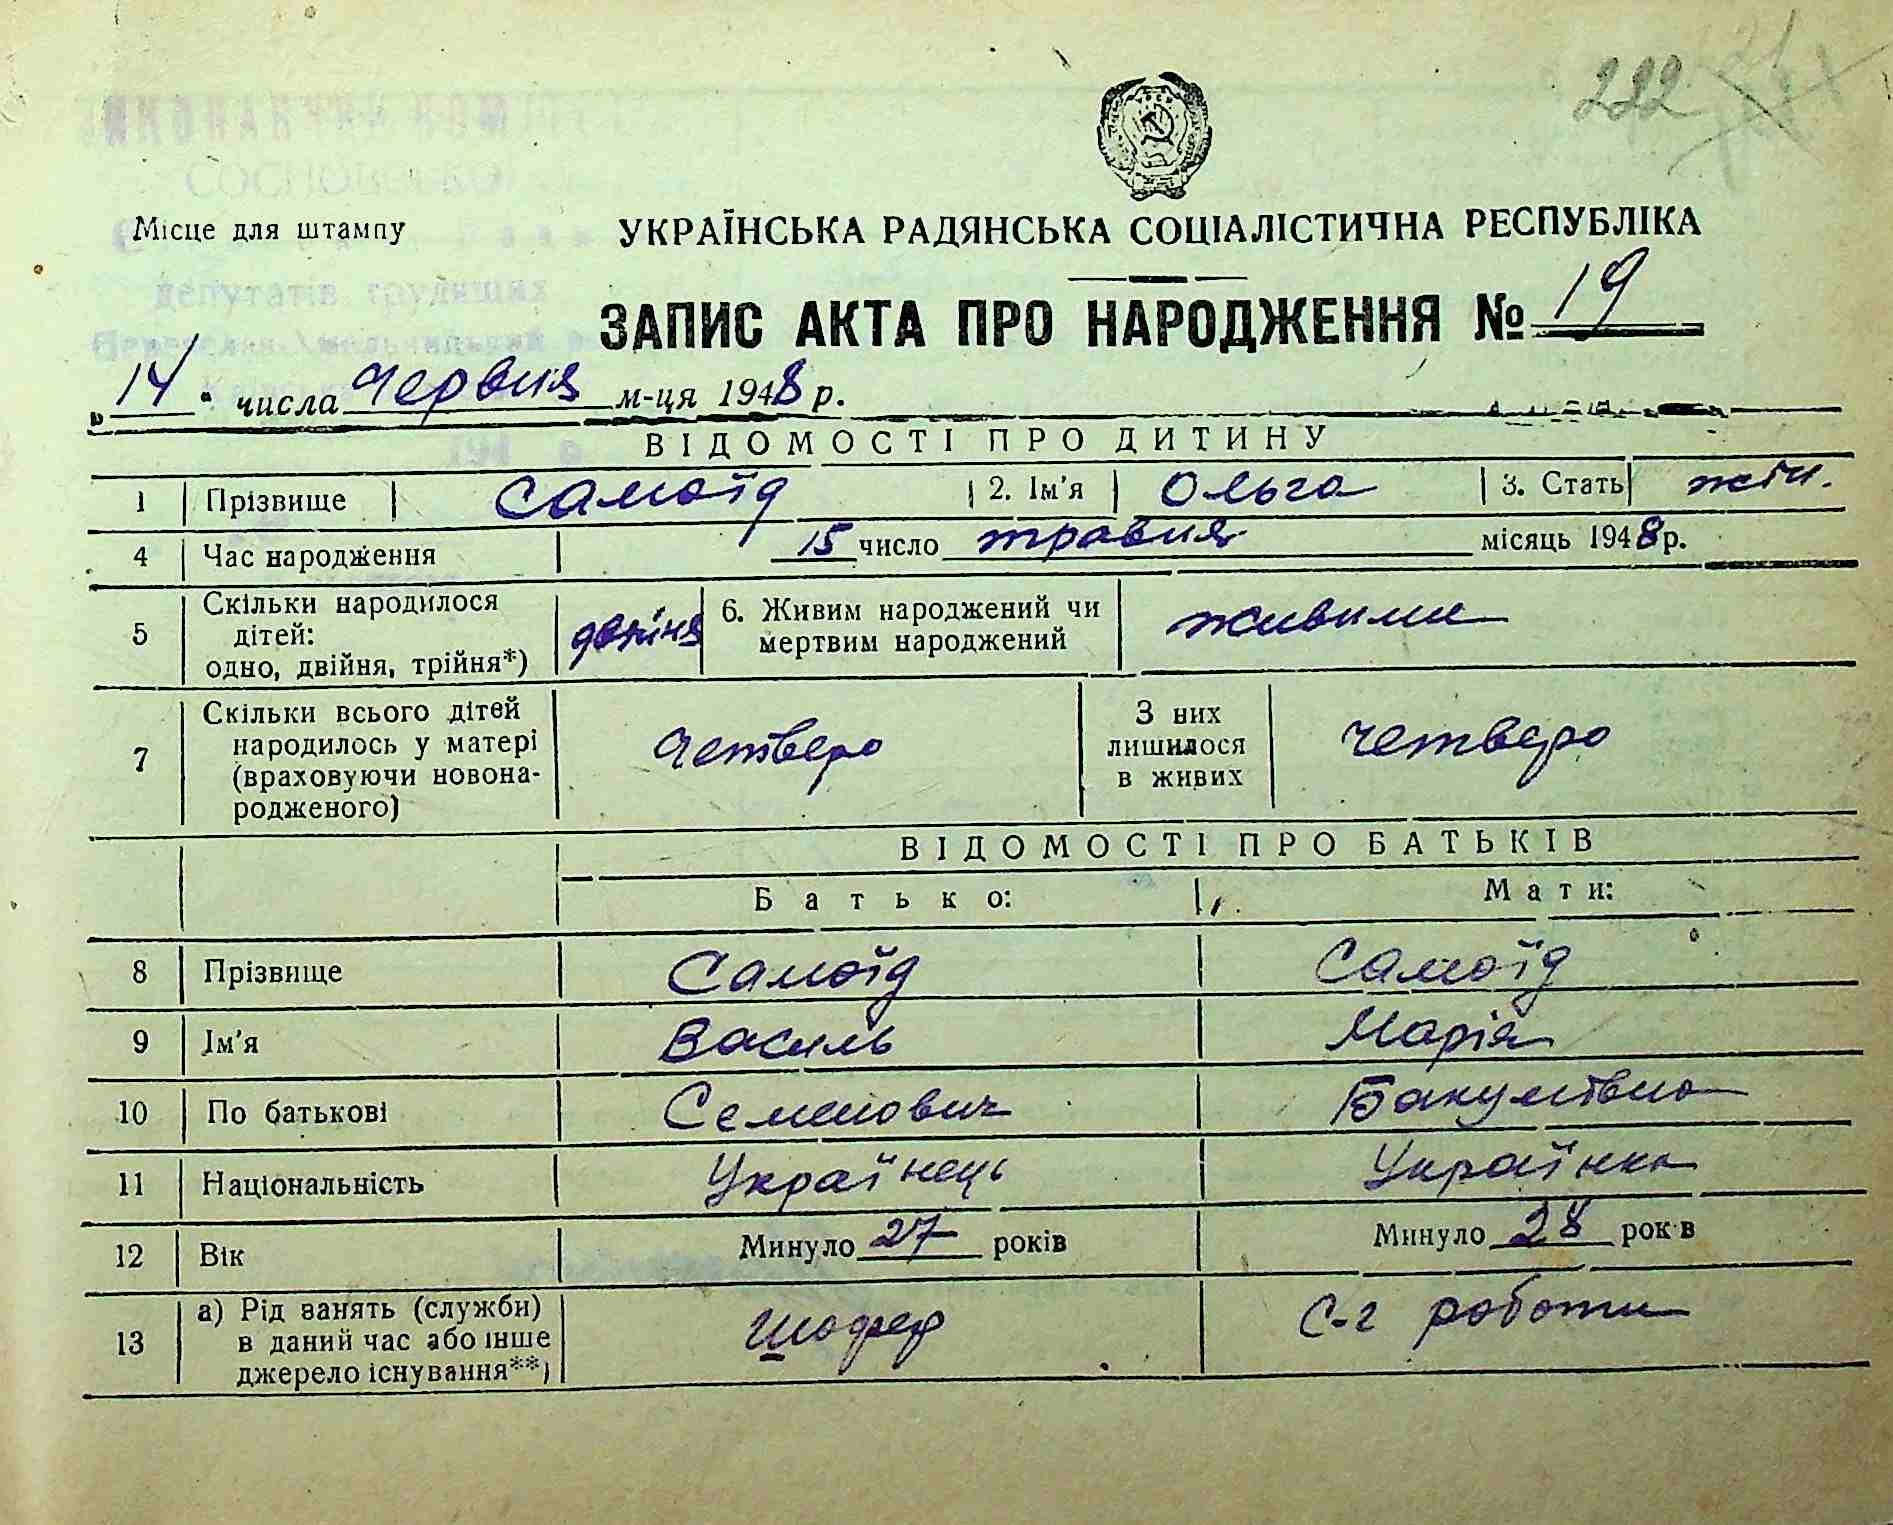 222
Місце для штампу
УКРАЇНСЬКА РАДЯНСЬКА СОЦІАЛІСТИЧНА РЕСПУБЛІКА
ЗАПИС АКТА ПРО НАРОДЖЕННЯ № 19
„14“ числа Червня м-ця 1948 р.
ВІДОМОСТІ ПРО ДИТИНУ
1 Прізвище Самоїд 2. Ім'я Ольга 3. Стать жін.
4 Час народження 15 число травня місяць 1948 р.
5 Скільки народилося дітей: одно, двійня, трійня*) двійня 6. Живим народжений чи мертвим народжений живими
7 Скільки всього дітей народилось у матері (враховуючи новонародженого) Четверо З них лишилося в живих четверо
ВІДОМОСТІ ПРО БАТЬКІВ
Батько: Мати:
8 Прізвище Самоїд Самоїд
9 Ім'я Василь Марія
10 По батькові Семенович Бакумівна
11 Національність Українець Українка
12 Вік Минуло 27 років Минуло 28 рок в
13 а) Рід занять (служби) в даний час або інше джерело існування**) Шофер С-г роботи